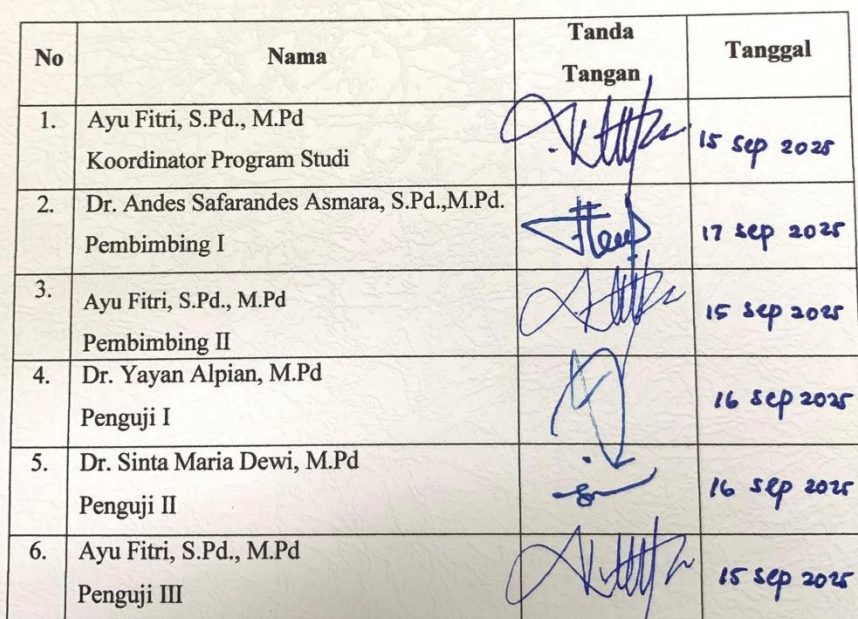 No Nama Tanda Tangan Tanggal
1. Ayu Fitri, S.Pd., M.Pd
Koordinator Program Studi
15 Sep 2025
2. Dr. Andes Safarandes Asmara, S.Pd.,M.Pd.
Pembimbing I
17 Sep 2025
3. Ayu Fitri, S.Pd., M.Pd
Pembimbing II
15 Sep 2025
4. Dr. Yayan Alpian, M.Pd
Penguji I
16 Sep 2025
5. Dr. Sinta Maria Dewi, M.Pd
Penguji II
16 Sep 2025
6. Ayu Fitri, S.Pd., M.Pd
Penguji III
15 Sep 2025